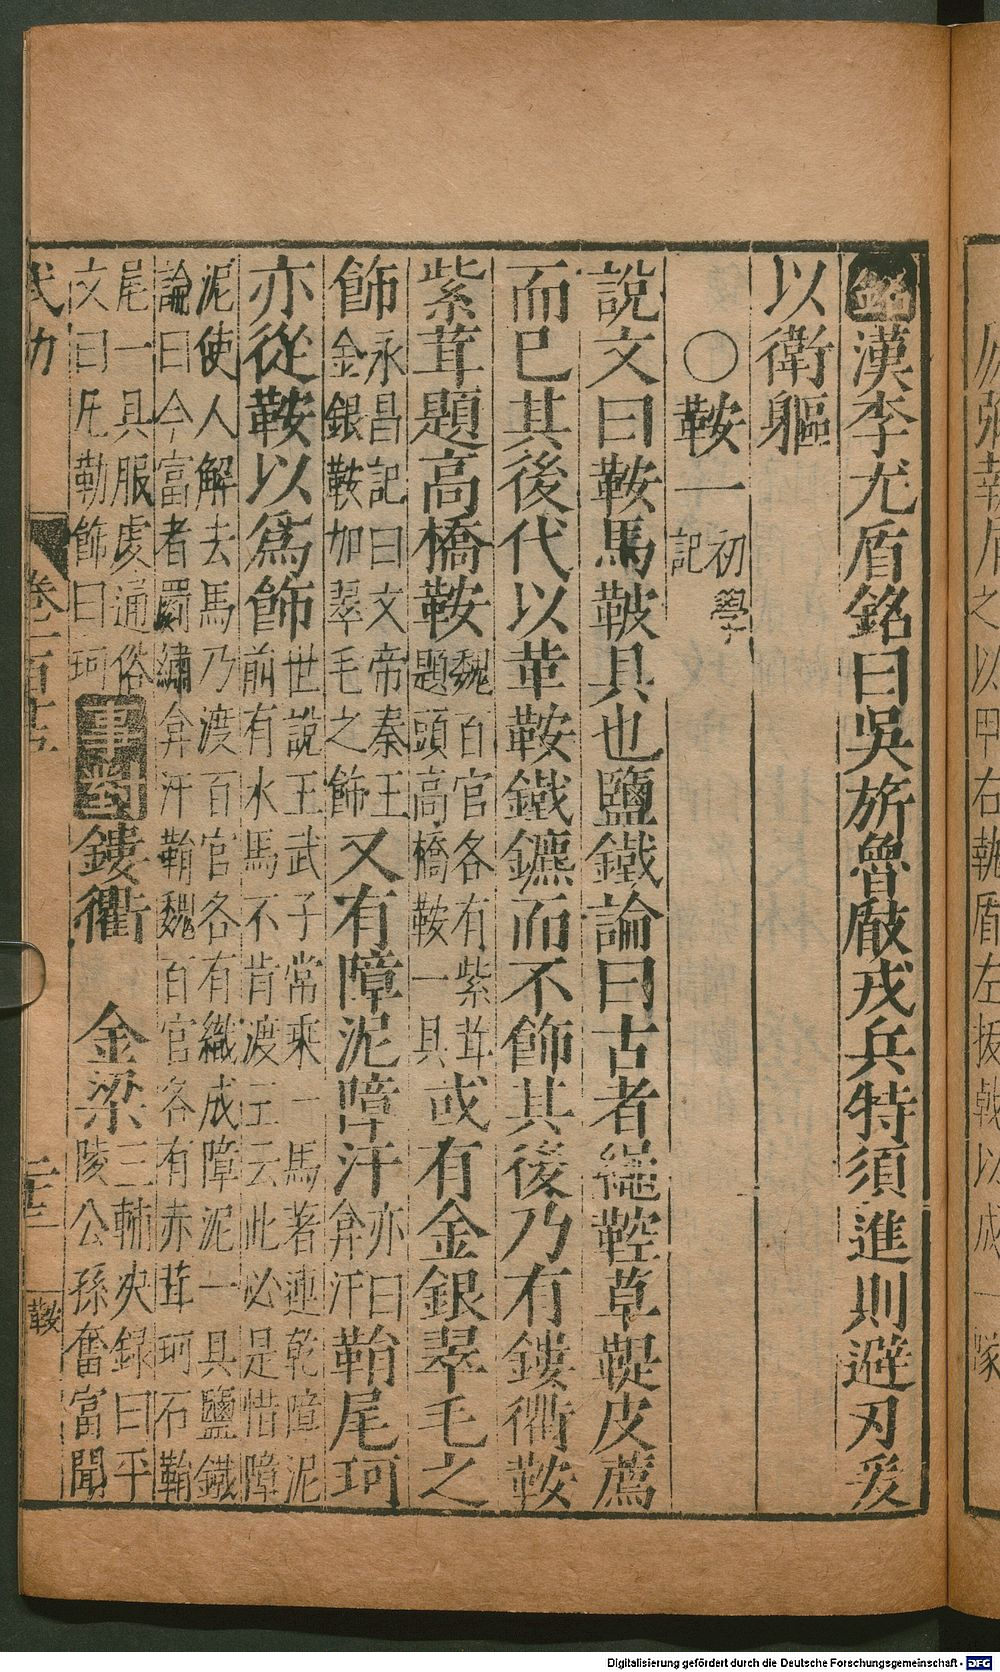 銘漢李尤盾銘曰吳旂魯厰戎兵特須進則避刃爰
以衛軀
〇鞍一初學記
說文曰鞍馬鞁具也鹽鐵論曰古者繩鞚草鞮皮薦
而已其後代以革鞍鐵鑣而不飾其後乃有鏤衢鞍
紫茸題高橋鞍魏百官各有紫茸題頭高橋鞍一具或有金銀翠毛之
飾永昌記曰文帝秦王金銀鞍加翠毛之飾又有障泥障汗亦曰弇汗鞘尾珂
亦從鞍以爲飾世說王武子常乘一馬著連乾障泥前有水馬不肯渡王云此必是惜障
泥使人解去馬乃渡百官各有織成障泥一具鹽鐵
論曰今富者罽繡弇汗鞘魏百官各有赤茸珂石鞘
尾一具服虔通俗文曰凡勒飾曰珂事對鏤衢 金梁三輔決錄曰平陵公孫奮富聞
武功 卷一百十五 二十三 鞍
之以甲右執盾左扳戟以成一隊
Digitalisierung gefördert durch die Deutsche Forschungsgemeinschaft - DFG